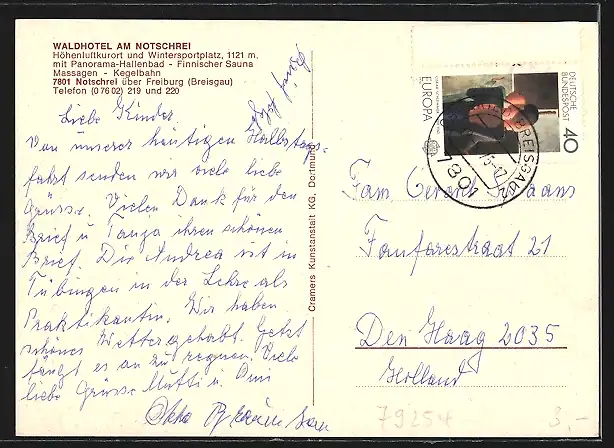 WALDHOTEL AM NOTSCHREI
Höhenluftkurort und Wintersportplatz, 1121 m,
mit Panorama-Hallenbad - Finnischer Sauna
Massagen - Kegelbahn
7801 Notschrei über Freiburg (Breisgau)
Telefon (0 76 02) 219 und 220
Liebe Kinder.
Von unserer heutigen Halbtags-
fahrt senden wir viele liebe
Grüsse. Vielen Dank für den
Brief u Tanja ihren schönen
Brief. Die Andrea ist in
Tübingen in der Lehre als
Praktikantin. Wir haben
schönes Wetter gehabt. Jetzt
fängt es an zu regnen. Viele
liebe Grüsse Mutti u. Omi
Otto
Cramers Kunstanstalt KG, Dortmund
EUROPA
DEUTSCHE
BUNDESPOST
40
BREISGAU
780
Fam
Fanfarestraat 21
Den Haag 2035
Holland
79254
3,-